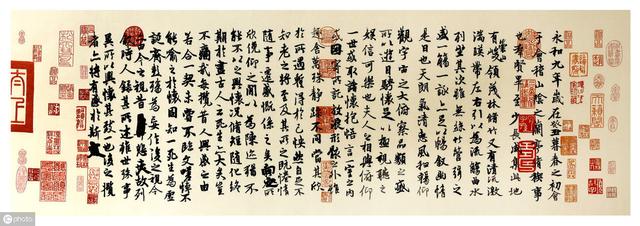 永和九年歲在癸丑暮春之初會
于會稽山陰之蘭亭脩稧事
也羣賢畢至少長咸集此地
有崇山峻領茂林脩竹又有清流激
湍暎帶左右引以為流觴曲水
列坐其次雖無絲竹管弦之
盛一觴一詠亦足以暢敘幽情
是日也天朗氣清惠風和暢仰
觀宇宙之大俯察品類之盛
所以遊目騁懷足以極視聽之
娛信可樂也夫人之相與俯仰
一世或取諸懷抱悟言一室之內
或因寄所託放浪形骸之外雖
趣舍萬殊靜躁不同當其欣
於所遇暫得於己怏然自足不
知老之將至及其所之既惓情
隨事遷感慨係之矣向之所
欣俛仰之間以為陳迹猶不
能不以之興懷況脩短隨化終
期於盡古人云死生亦大矣豈
不痛哉每攬昔人興感之由
若合一契未嘗不臨文嗟悼不
能喻之於懷固知一死生為虛
誕齊彭殤為妄作後之視今
亦由今之視昔悲夫故列
敘時人錄其所述雖世殊事
異所以興懷其致一也後之攬
者亦將有感於斯文
cphoto